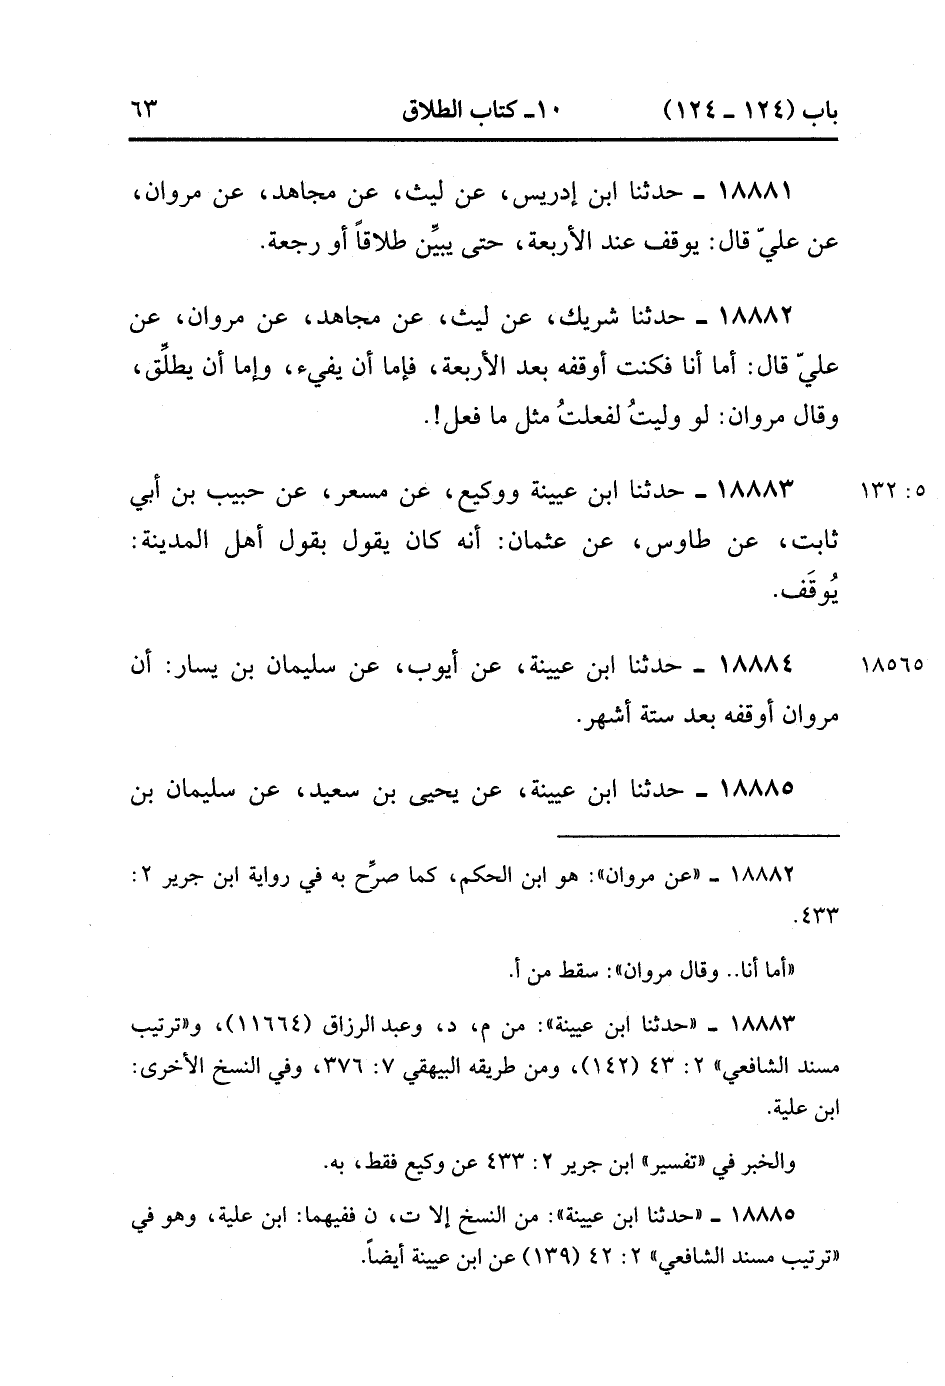 باب (١٢٤ ـ ١٢٤) ١٠ـ كتاب الطلاق ٦٣
١٨٨٨١ ـ حدثنا ابن إدريس، عن ليث، عن مجاهد، عن مروان،
عن عليّ قال: يوقف عند الأربعة، حتى يبيِّن طلاقاً أو رجعة.
١٨٨٨٢ ـ حدثنا شريك، عن ليث، عن مجاهد، عن مروان، عن
عليّ قال: أما أنا فكنت أوقفه بعد الأربعة، فإما أن يفيء، وإما أن يطلِّق،
وقال مروان: لو وليتُ لفعلتُ مثل ما فعل!.
١٨٨٨٣ ـ حدثنا ابن عيينة ووكيع، عن مسعر، عن حبيب بن أبي ٥: ١٣٢
ثابت، عن طاوس، عن عثمان: أنه كان يقول بقول أهل المدينة:
يُوقَف.
١٨٨٨٤ ـ حدثنا ابن عيينة، عن أيوب، عن سليمان بن يسار: أن ١٨٥٦٥
مروان أوقفه بعد ستة أشهر.
١٨٨٨٥ ـ حدثنا ابن عيينة، عن يحيى بن سعيد، عن سليمان بن
١٨٨٨٢ ـ «عن مروان»: هو ابن الحكم، كما صرَّح به في رواية ابن جرير ٢:
٤٣٣.
«أما أنا.. وقال مروان»: سقط من أ.
١٨٨٨٣ ـ «حدثنا ابن عيينة»: من م، د، وعبد الرزاق (١١٦٦٤)، و«ترتيب
مسند الشافعي» ٢: ٤٣ (١٤٢)، ومن طريقه البيهقي ٧: ٣٧٦، وفي النسخ الأخرى:
ابن علية.
والخبر في «تفسير» ابن جرير ٢: ٤٣٣ عن وكيع فقط، به.
١٨٨٨٥ ـ «حدثنا ابن عيينة»: من النسخ إلا ت، ن ففيهما: ابن علية، وهو في
«ترتيب مسند الشافعي» ٢: ٤٢ (١٣٩) عن ابن عيينة أيضاً.